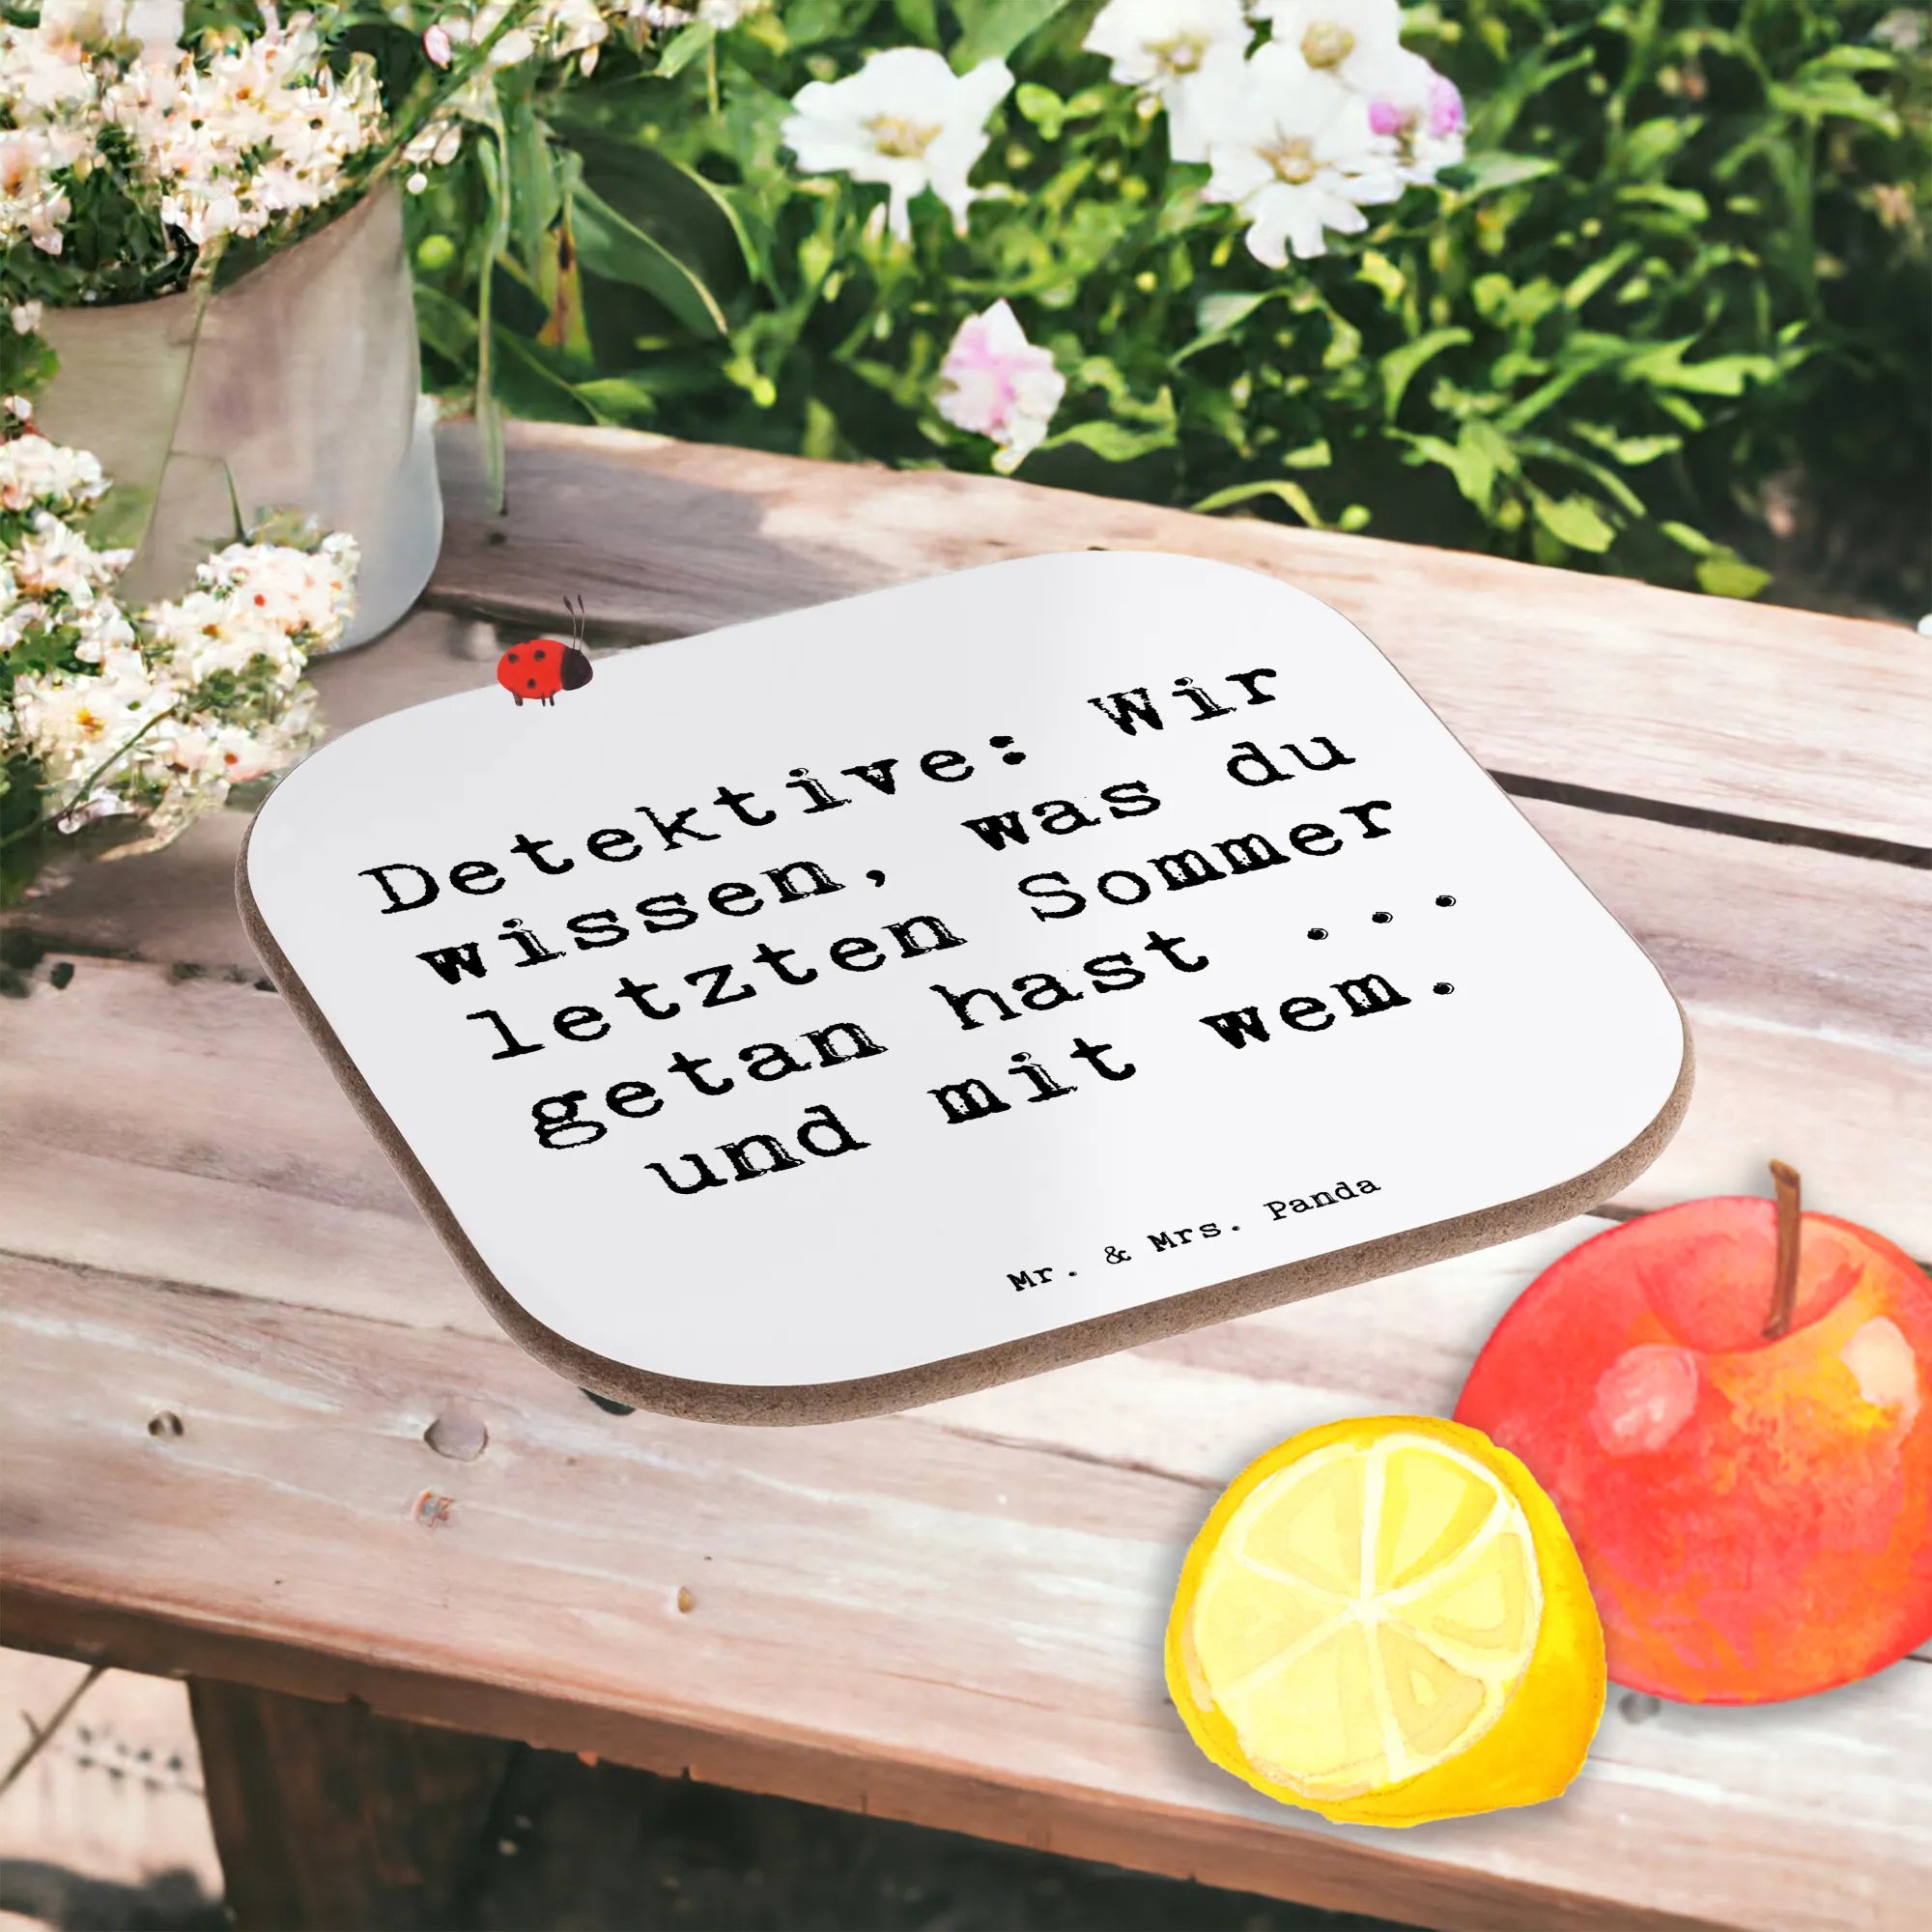 Detektive: Wir
wissen, was du
letzten Sommer
getan hast ...
und mit wem.
Mr. & Mrs. Panda